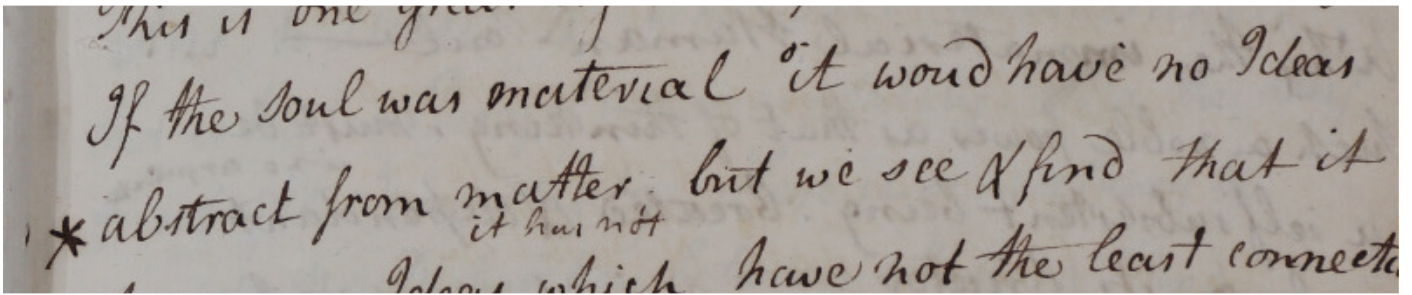 This is one great
If the soul was material it woud have no Ideas
abstract from matter. but we see & find that it
* it has not
Ideas which have not the least connect